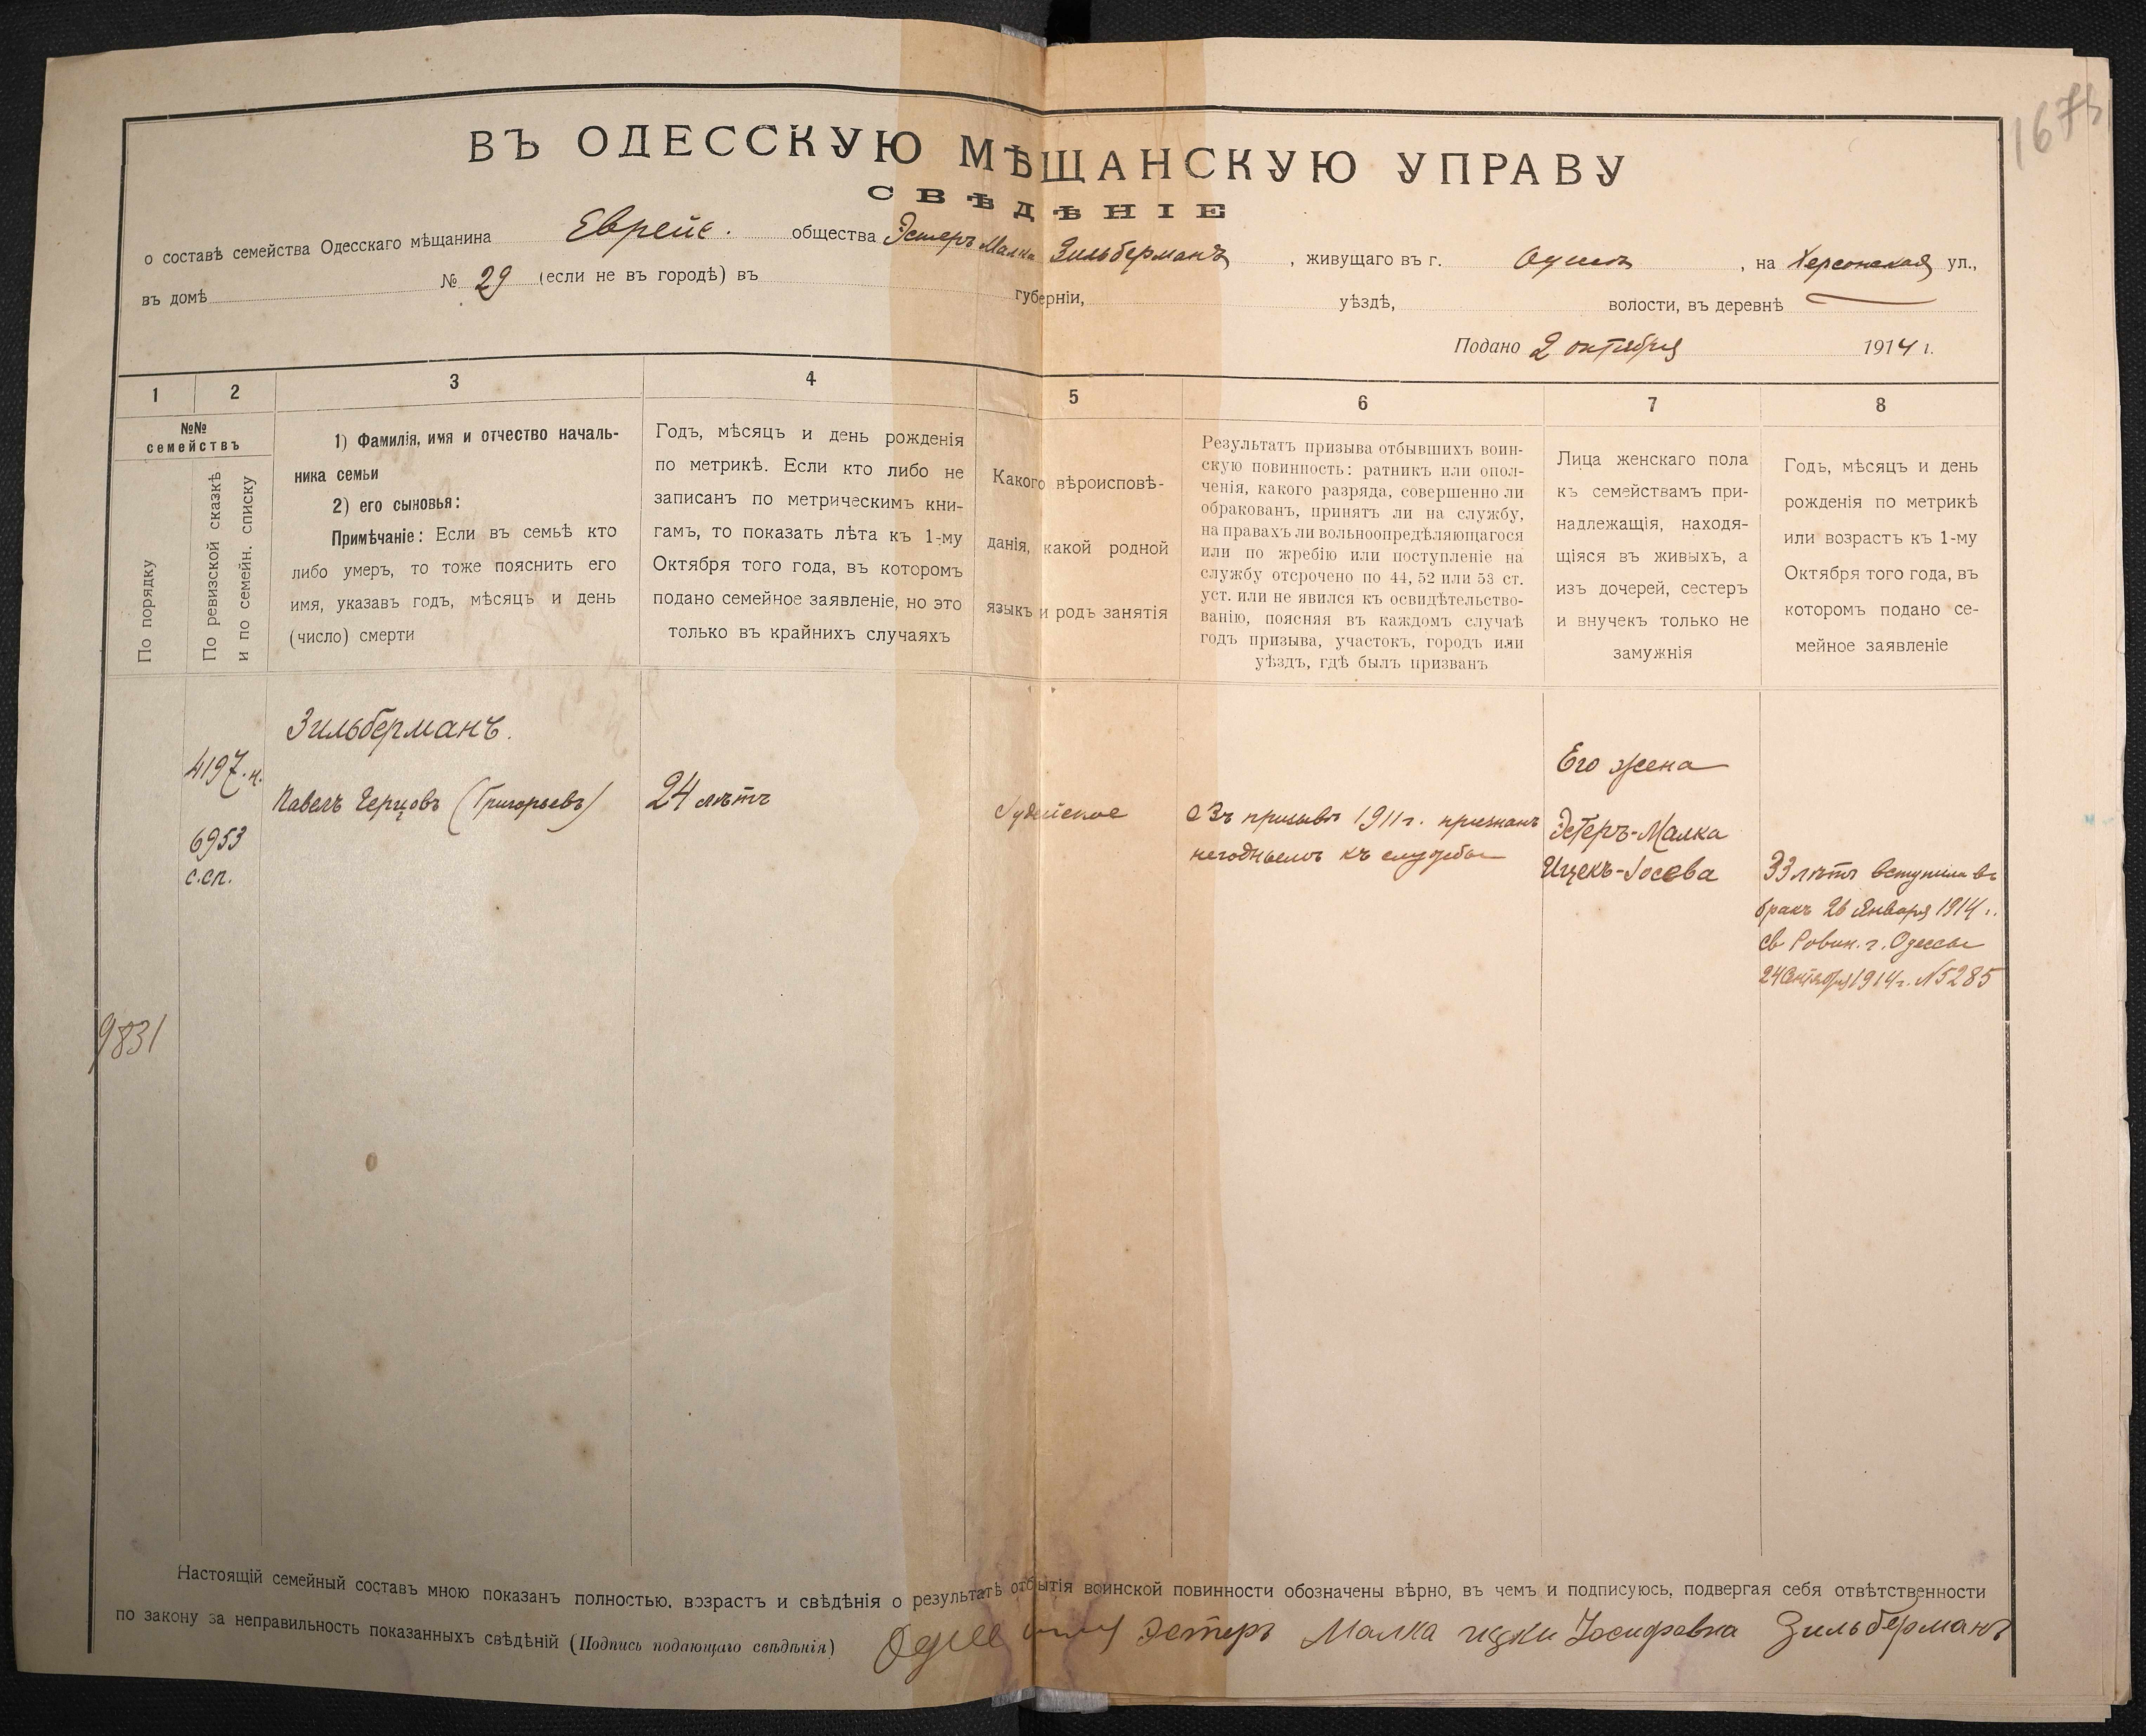 167
ВЪ ОДЕССКУЮ МѢЩАНСКУЮ УПРАВУ
СВѢДѢНІЕ
о составѣ семейства Одесскаго мѣщанина Еврейс. общества Эстеръ Малка Зильберманъ, живущаго въ г. Одессѣ, на Херсонской ул.,
въ домѣ № 29 (если не въ городѣ) въ губерніи, уѣздѣ, волости, въ деревнѣ
Подано 2 октября 1914 г.
1 2 3 4 5 6 7 8
№№ семействъ
По порядку
По ревизской сказкѣ
и по семейн. списку
1) Фамилія, имя и отчество началь-
ника семьи
2) его сыновья:
Примѣчаніе: Если въ семьѣ кто
либо умеръ, то тоже пояснить его
имя, указавъ годъ, мѣсяцъ и день
(число) смерти
Годъ, мѣсяцъ и день рожденія
по метрикѣ. Если кто либо не
записанъ по метрическимъ кни-
гамъ, то показать лѣта къ 1-му
Октября того года, въ которомъ
подано семейное заявленіе, но это
только въ крайнихъ случаяхъ
Какого вѣроисповѣ-
данія, какой родной
языкъ и родъ занятія
Результатъ призыва отбывшихъ воин-
скую повинность: ратникъ или опол-
ченія, какого разряда, совершенно ли
обракованъ, принятъ ли на службу,
на правахъ ли вольноопредѣляющагося
или по жребію или поступленіе на
службу отсрочено по 44, 52 или 53 ст.
уст. или не явился къ освидѣтельство-
ванію, поясняя въ каждомъ случаѣ
годъ призыва, участокъ, городъ или
уѣздъ, гдѣ былъ призванъ
Лица женскаго пола
къ семействамъ при-
надлежащія, находя-
щіяся въ живыхъ, а
изъ дочерей, сестеръ
и внучекъ только не
замужнія
Годъ, мѣсяцъ и день
рожденія по метрикѣ
или возрастъ къ 1-му
Октября того года, въ
которомъ подано се-
мейное заявленіе
9831
4197. н.
6953
с.сп.
Зильберманъ.
Павелъ Герцовъ (Григорьевъ)
24 лѣтъ
Іудейское
Въ призывѣ 1911 г. признанъ
негоднымъ къ службѣ
Его жена
Эстеръ-Малка
Ицекъ-Іосева
33 лѣтъ вступила въ
бракъ 26 Января 1914 г.
св Равин. г. Одессы
24 Сентября 1914 г. №5285
Настоящій семейный составъ мною показанъ полностью. возрастъ и свѣдѣнія о результатѣ отбытія воинской повинности обозначены вѣрно, въ чемъ и подписуюсь, подвергая себя отвѣтственности
по закону за неправильность показанныхъ свѣдѣній (Подпись подающаго свѣдѣнія) Эстеръ Малка ицки Іосифовна Зильберманъ